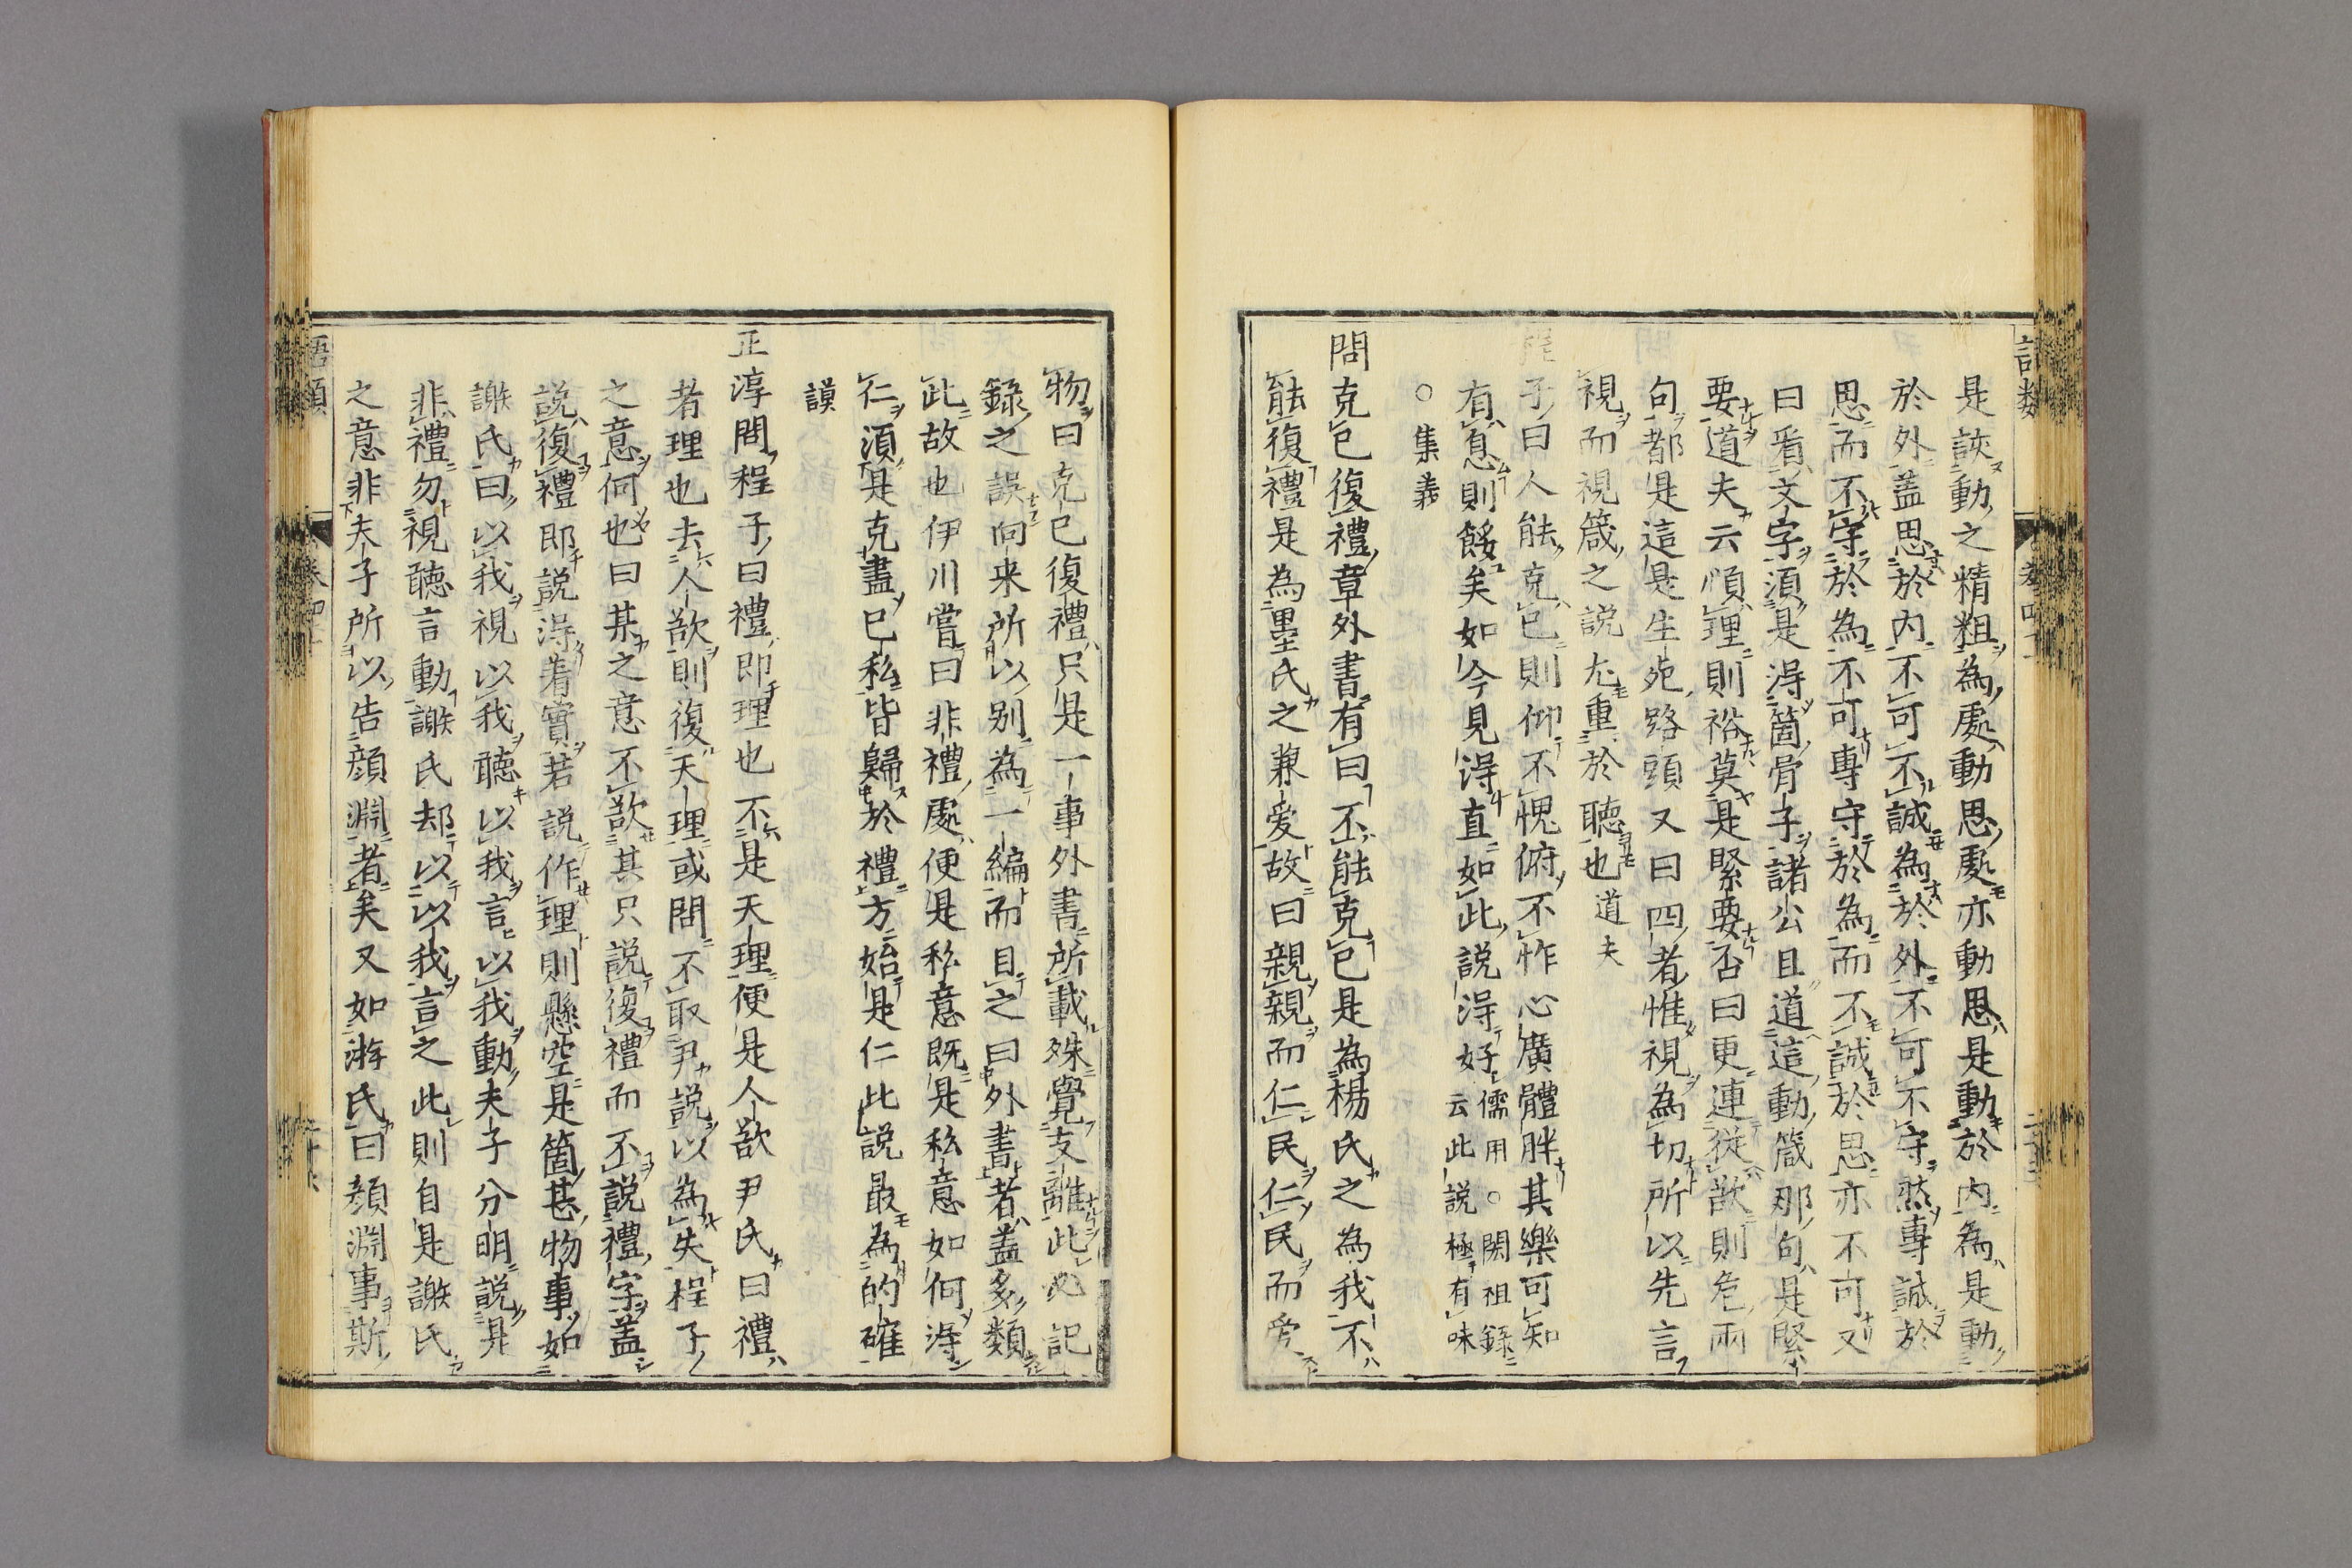 是詼動之精粗為處動思處亦動思是動於內為是動
於外蓋思於內不可不誠為於外不可不守然專誠於
思而不守於為不可專守於為而不誠於思亦不可又
曰看文字須是得箇骨子諸公且道這動箴那句是緊
要道夫云順理則裕莫是緊要否曰更連從欲則危兩
句都是這是生死路頭又曰四者惟視為切所以先言
視而視箴之說尤重於聽也道夫
程子曰人能克已則仰不愧俯不怍心廣體胖其樂可知
有息則餒矣如今見得直如此說得好儒用○閎祖錄
云此說極有味
○集義
問克已復禮章外書有曰不能克已是為楊氏之為我不
能復禮是為墨氏之兼愛故曰親親而仁民仁民而愛
物曰克已復禮只是一事外書所載殊覺支離此必記
錄之誤向来所以別為一編而目之曰外書者蓋多類
此故也伊川嘗曰非禮處便是私意既是私意如何得
仁須是克盡已私皆歸於禮方始是仁此說最為的確
謨
正淳問程子曰禮即理也不是天理便是人欲尹氏曰禮
者理也去人欲則復天理或問不取尹說以為失程子
之意何也曰某之意不欲其只說復禮而不說禮字蓋
說復禮即說得着實若說作理則懸空是箇甚物事如
謝氏曰以我視以我聽以我言以我動夫子分明說是
非禮勿視聽言動謝氏却以以我言之此則自是謝氏
之意非夫子所以告顏淵者矣又如游氏曰顏淵事斯
語類 卷四十